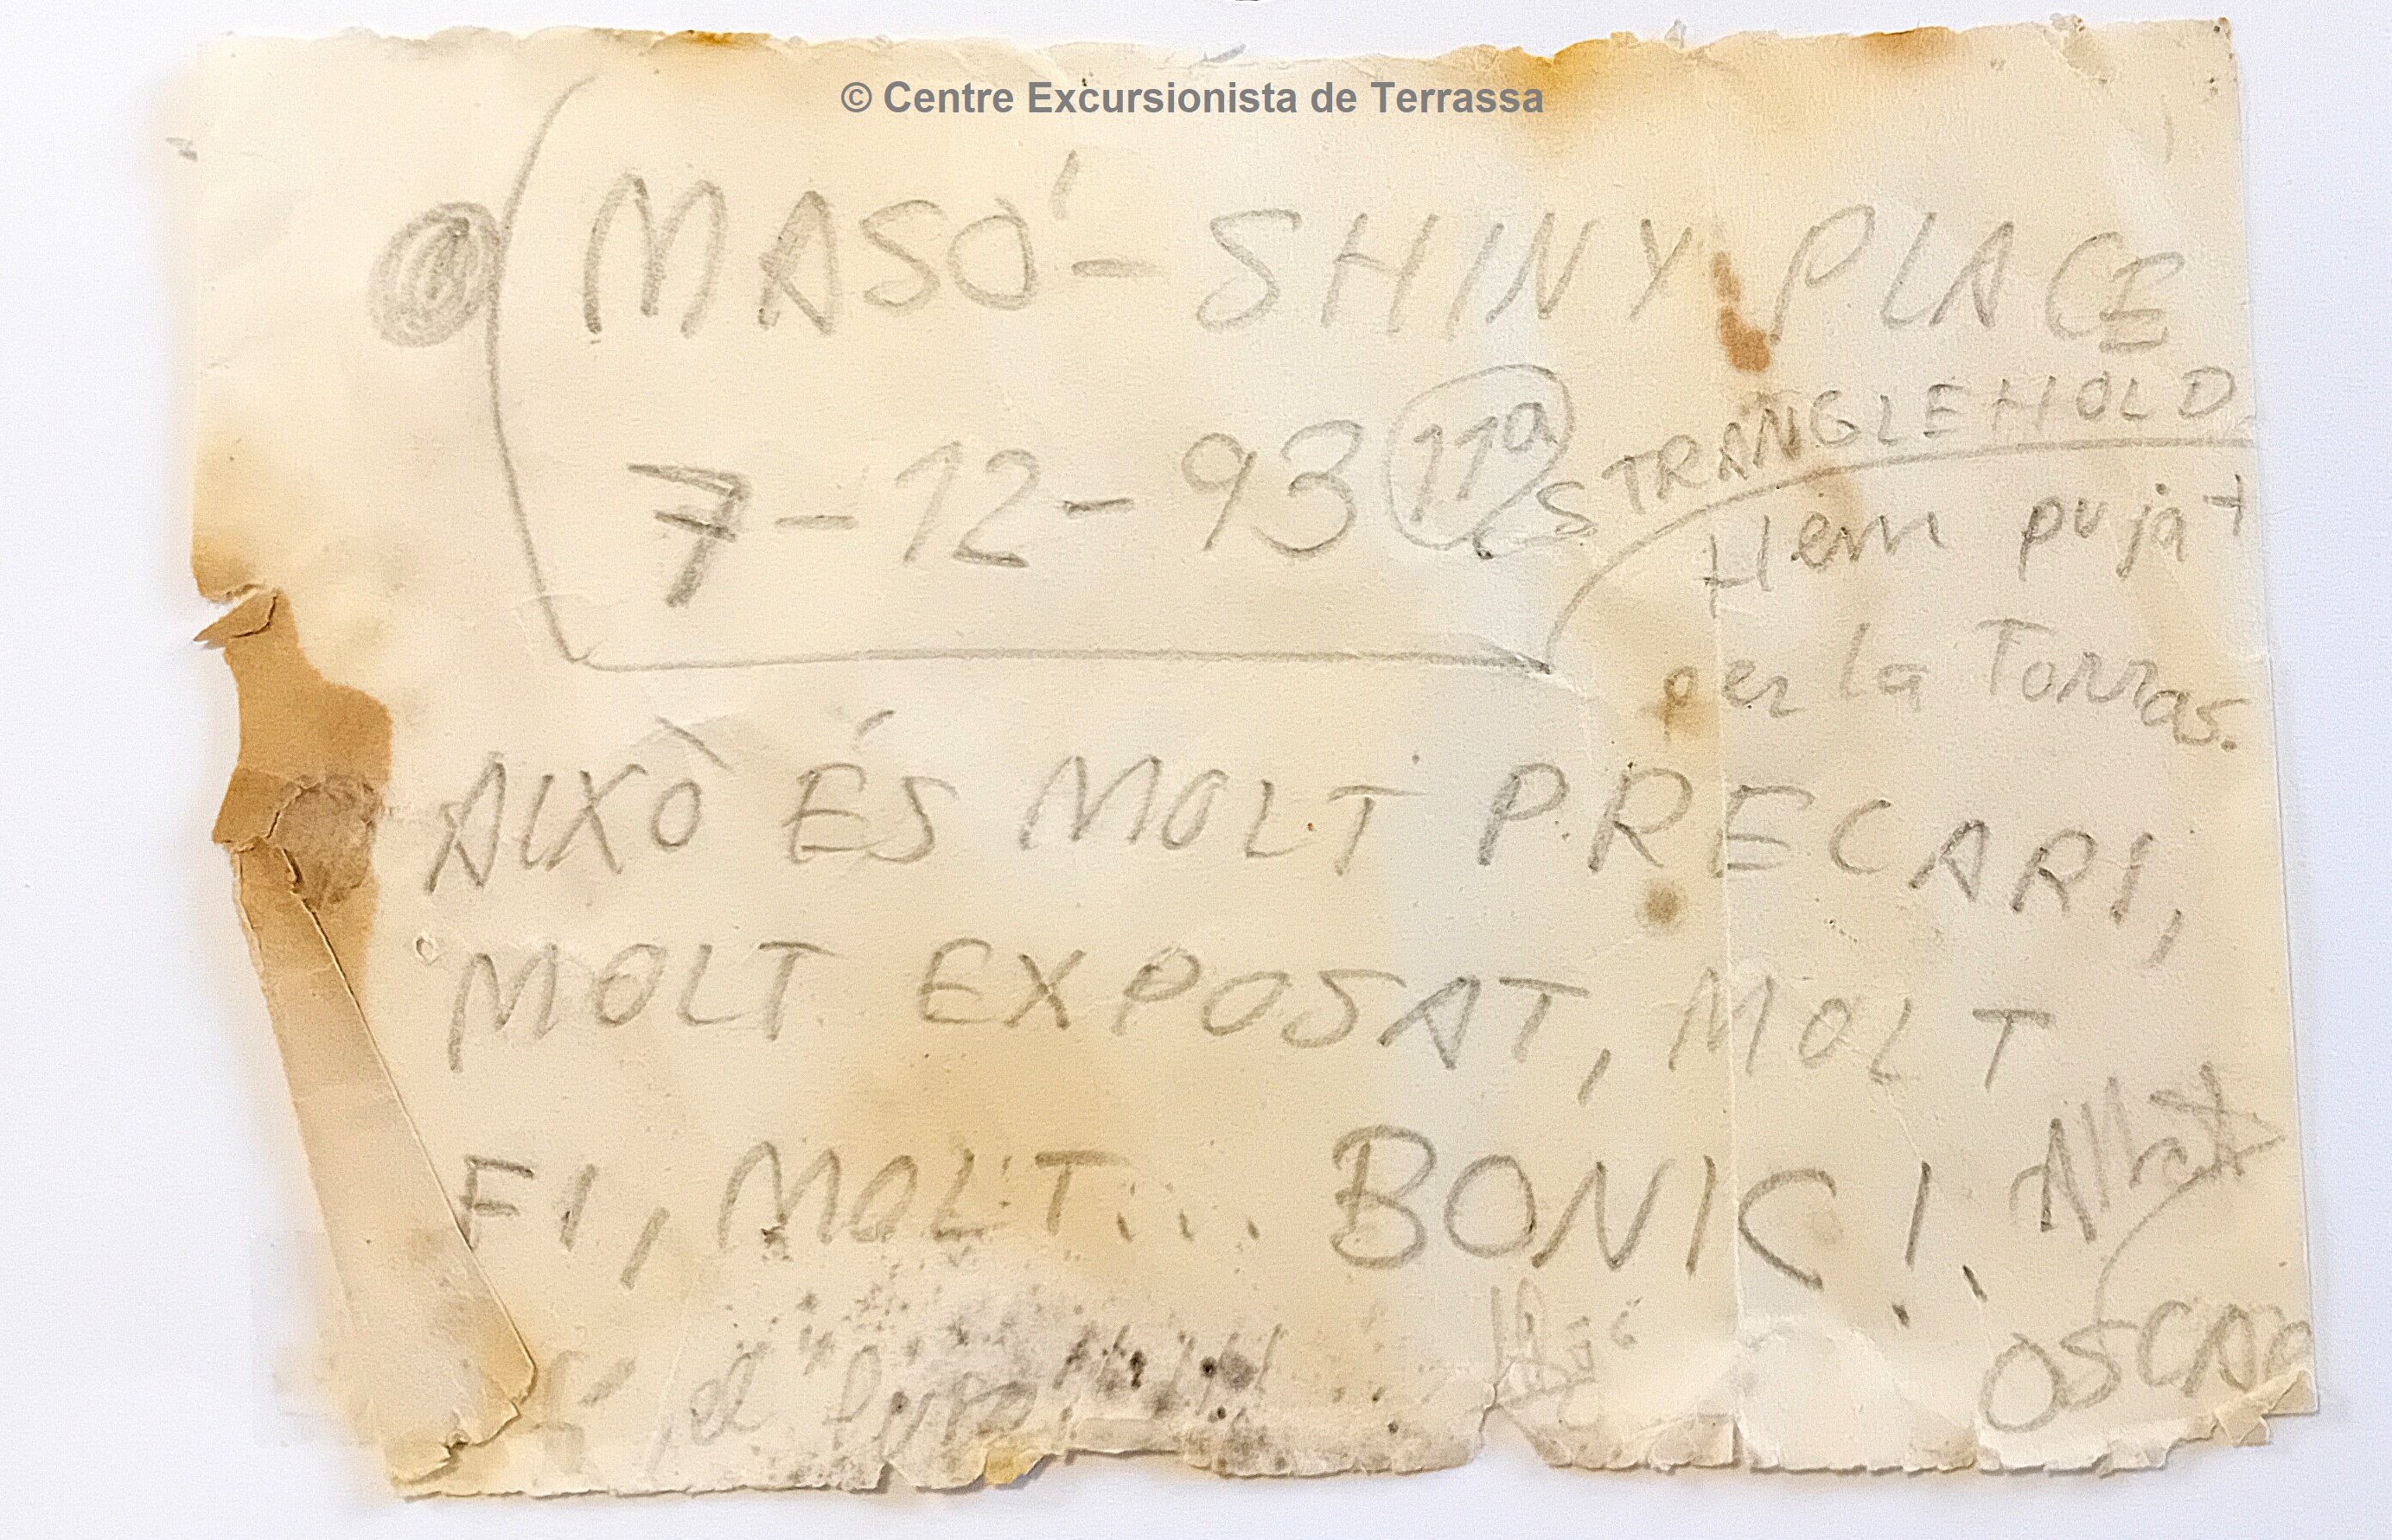 © Centre Excursionista de Terrassa
MASÓ - SHINY PLACE
7-12-93 11ª STRANGLEHOLD
Hem pujat
per la Torras.
AIXÒ ÉS MOLT PRECARI,
MOLT EXPOSAT, MOLT
FI, MOLT... BONIC!
OSCAR